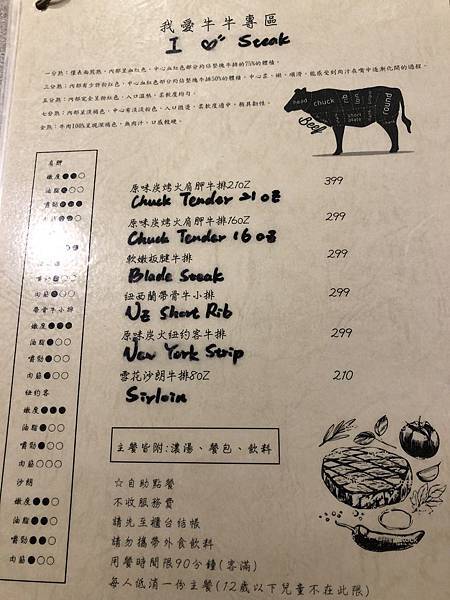 我愛牛牛專區
I Steak
一分熟：僅表面煎熟，內部呈血紅色，中心血紅色部分約佔整塊牛排的75%的體積。
三分熟：內部有少許粉紅色，中心血紅色部分約佔整塊牛排50%的體積，中心柔、嫩、順滑，能感受到肉汁在嘴中逐漸化開的過程。
五分熟：內部完全呈粉紅色，入口溫熱，柔軟度均勻。
七分熟：內部呈深褐色，中心有淡淡粉色，入口微燙，柔軟度適中，極具韌性。
全熟：牛肉100%呈現深褐色，無肉汁，口感較硬。
head
chuck
short plate
rump
Beef
原味炭烤火肩胛牛排21OZ 399
Chuck Tender 21 oz
原味炭烤火肩胛牛排16OZ 299
Chuck Tender 16 oz
軟嫩板腱牛排 299
Blade Steak
紐西蘭帶骨牛小排 299
NZ Short Rib
原味炭火紐約客牛排 299
New York Strip
雪花沙朗牛排8OZ 210
Sirloin
肩胛
嫩度●●○
油脂●○○
嚼勁●●●
肉筋●○○
帶骨牛小排
嫩度●●●
油脂●○○
嚼勁●○○
肉筋●○○
紐約客
嫩度●●●
油脂●○○
嚼勁●○○
肉筋○○○
沙朗
嫩度●●○
油脂●●○
嚼勁●●○
肉筋●○○
主餐皆附:濃湯、餐包、飲料
☆自助點餐
不收服務費
請先至櫃台結帳
請勿攜帶外食飲料
用餐時間限90分鐘(客滿)
每人低消一份主餐(12歲以下兒童不在此限)